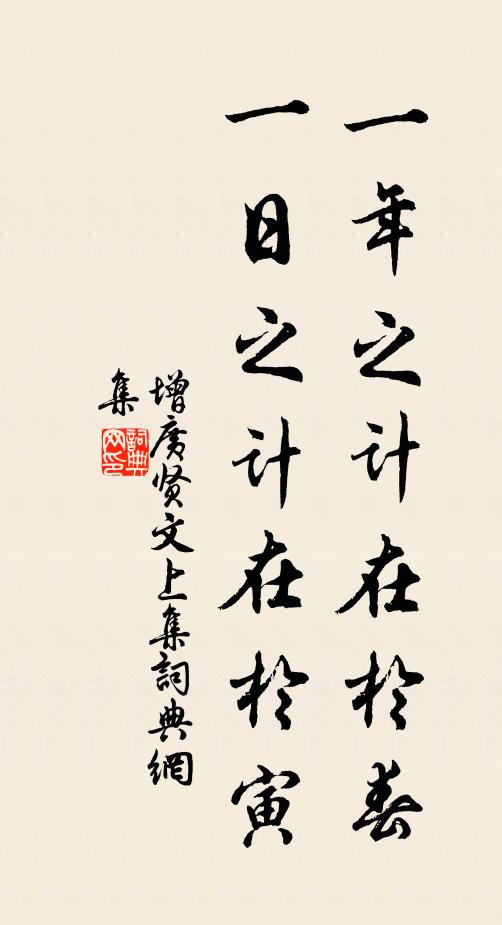 一年之计在於春
一日之计在於寅
增广贤文上集詞典網
集
詞典网印